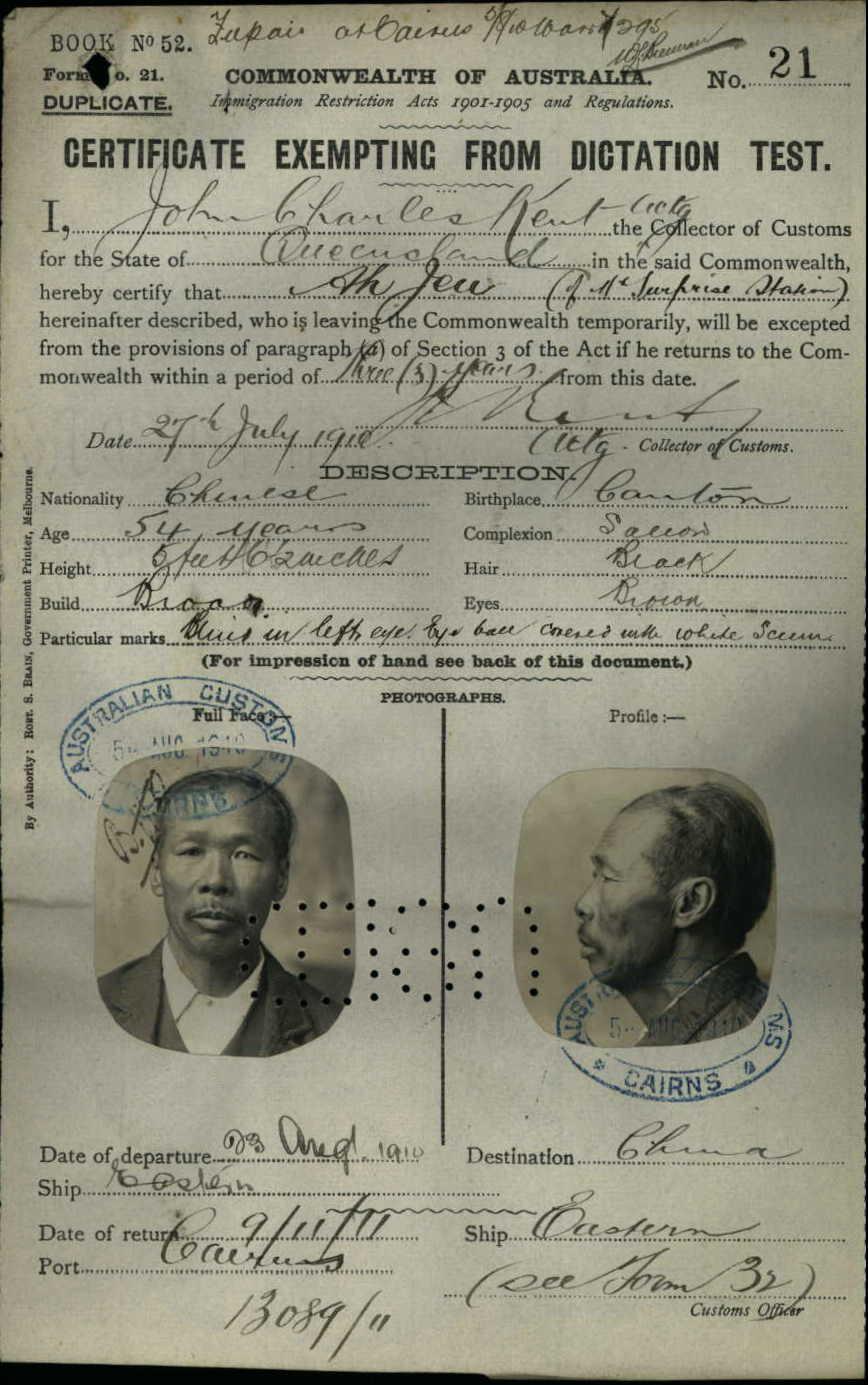 BOOK No 52.
at Cairns
Form No. 21.
COMMONWEALTH OF AUSTRALIA.
No. 21
DUPLICATE.
Immigration Restriction Acts 1901-1905 and Regulations.
CERTIFICATE EXEMPTING FROM DICTATION TEST.
I, John Charles Kent Actg the Collector of Customs
for the State of Queensland in the said Commonwealth,
hereby certify that Ah Jew (of Mt Surprise Station)
hereinafter described, who is leaving the Commonwealth temporarily, will be excepted
from the provisions of paragraph (a) of Section 3 of the Act if he returns to the Com-
monwealth within a period of three (3) years from this date.
Kent
Date 27th July 1910. Actg - Collector of Customs.
DESCRIPTION.
Nationality Chinese Birthplace Canton
Age 54 years Complexion Sallow
Height 5 feet 6 2 inches Hair Black
Build Broad Eyes Brown
Particular marks Blind in left eye. Eye ball covered with white Scum
(For impression of hand see back of this document.)
PHOTOGRAPHS.
Full Face:— Profile:—
AUSTRALIAN CUSTOMS
5- AUG 1910
CAIRNS
AUSTRALIAN CUSTOMS
5- AUG 1910
CAIRNS
Date of departure Aug. 1910 Destination China
Ship Eastern
Date of return 9/11/11 Ship Eastern
Port Cairns
(see Form 32)
Customs Officer
13089/11
By Authority: ROBT. S. BRAIN, Government Printer, Melbourne.